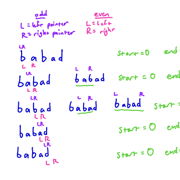 odd even
L = left pointer L = Left
R = right pointer R = right
LR
babad start = 0 end
L R
LR L R
babad babad start = 0 end
L R
LR L R L R
babad babad babad start =
L R
LR
babad start = 0 end
L R
LR
babad start = 0 end
L R